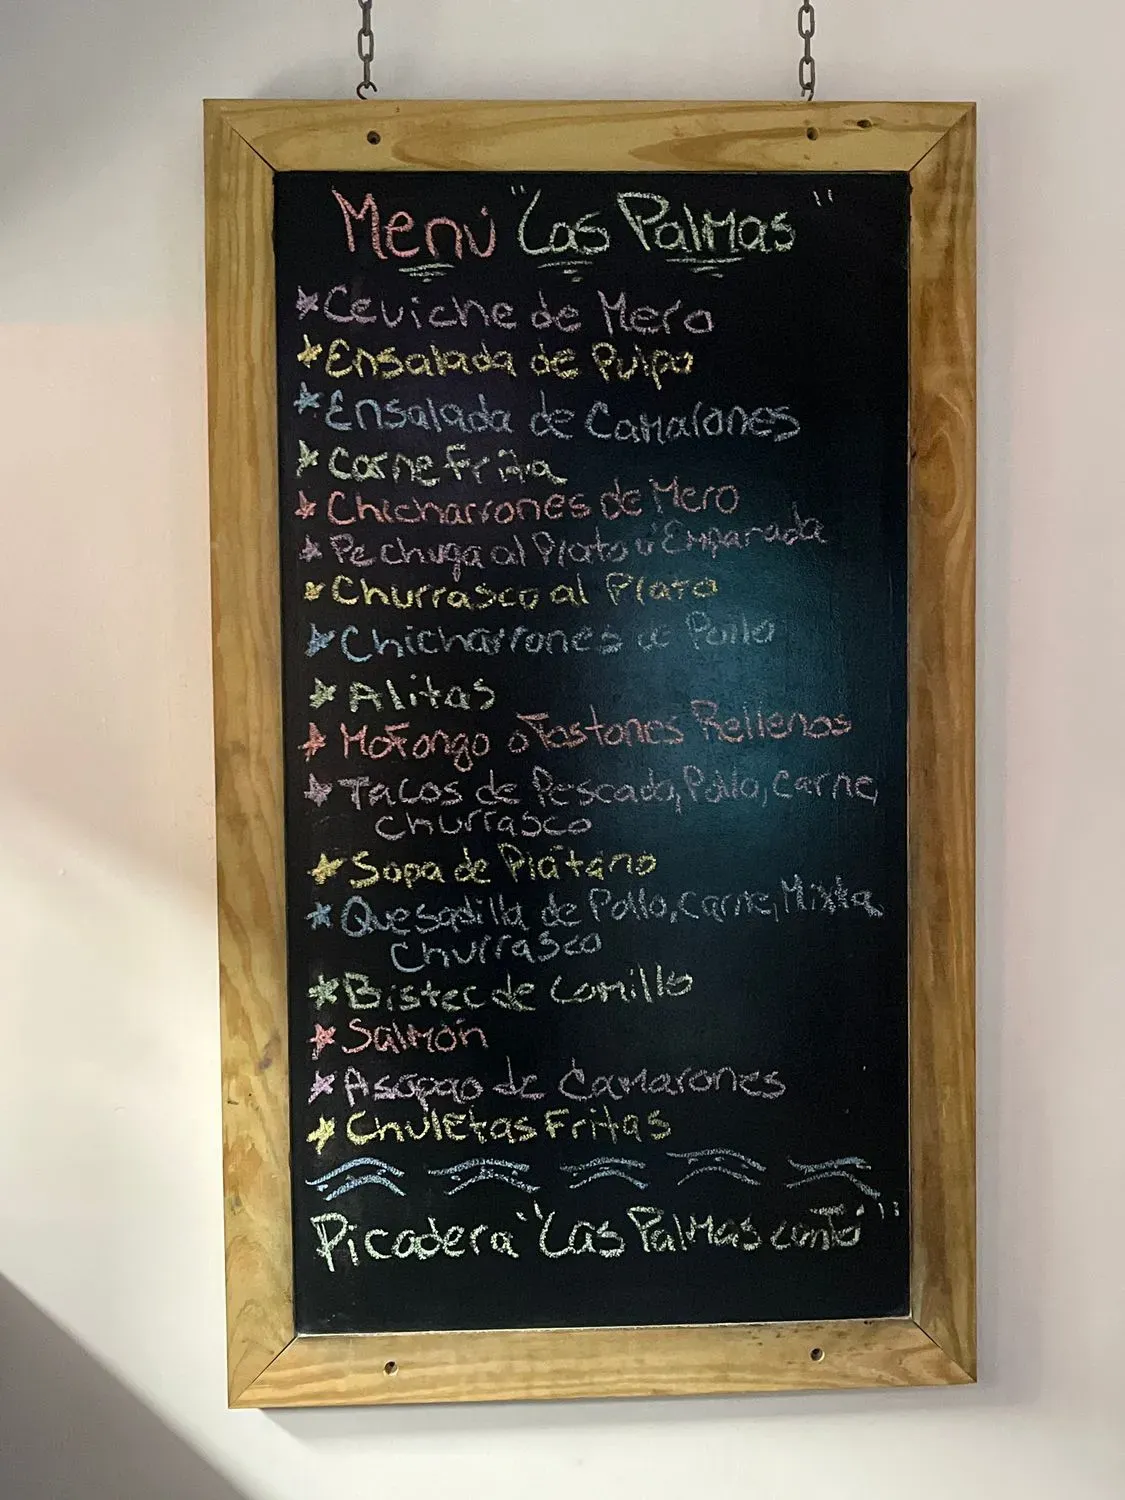 Menú "Las Palmas"
*Ceviche de Mero
*Ensalada de Pulpo
*Ensalada de Camarones
*Carne Frita
*Chicharrones de Mero
*Pechuga al Plato ú Empanada
*Churrasco al Plato
*Chicharrones de Pollo
*Alitas
*Mofongo o Tostones Rellenos
*Tacos de Pescado, Pollo, Carne,
churrasco
*Sopa de Plátano
*Quesadilla de Pollo, Carne, Mixta
Churrasco
*Bistec de Lomillo
*Salmón
*Asopao de Camarones
*Chuletas Fritas
Picadera "Las Palmas